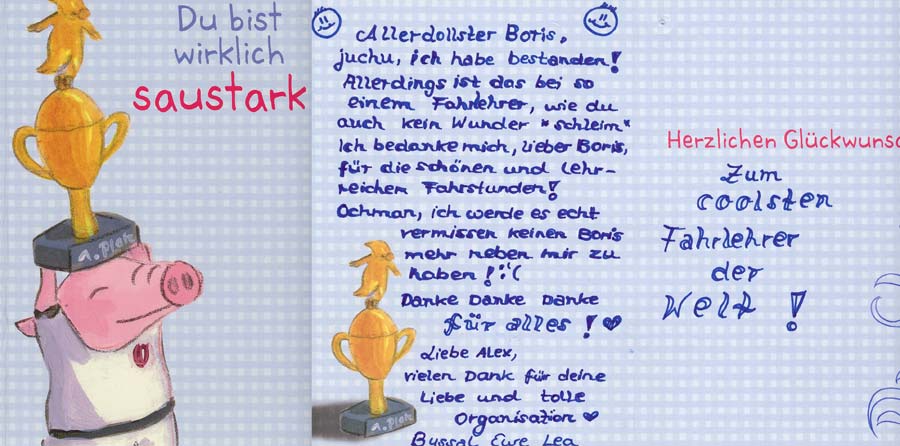 Du bist
wirklich
saustark
1. Platz
Allerdollster Boris,
juchu, ich habe bestanden!
Allerdings ist das bei so
einem Fahrlehrer, wie du
auch kein Wunder *schleim*
Ich bedanke mich, lieber Boris,
für die schönen und lehr-
reichen Fahrstunden!
Ochman, ich werde es echt
vermissen keinen Boris
mehr neben mir zu
haben! :'(
Danke Danke Danke
für alles! ♥
Liebe Alex,
vielen Dank für deine
Liebe und tolle
Organisation ♥
Bussal Eure Lea
1. Platz
Herzlichen Glückwunsc
Zum
coolsten
Fahrlehrer
der
Welt!